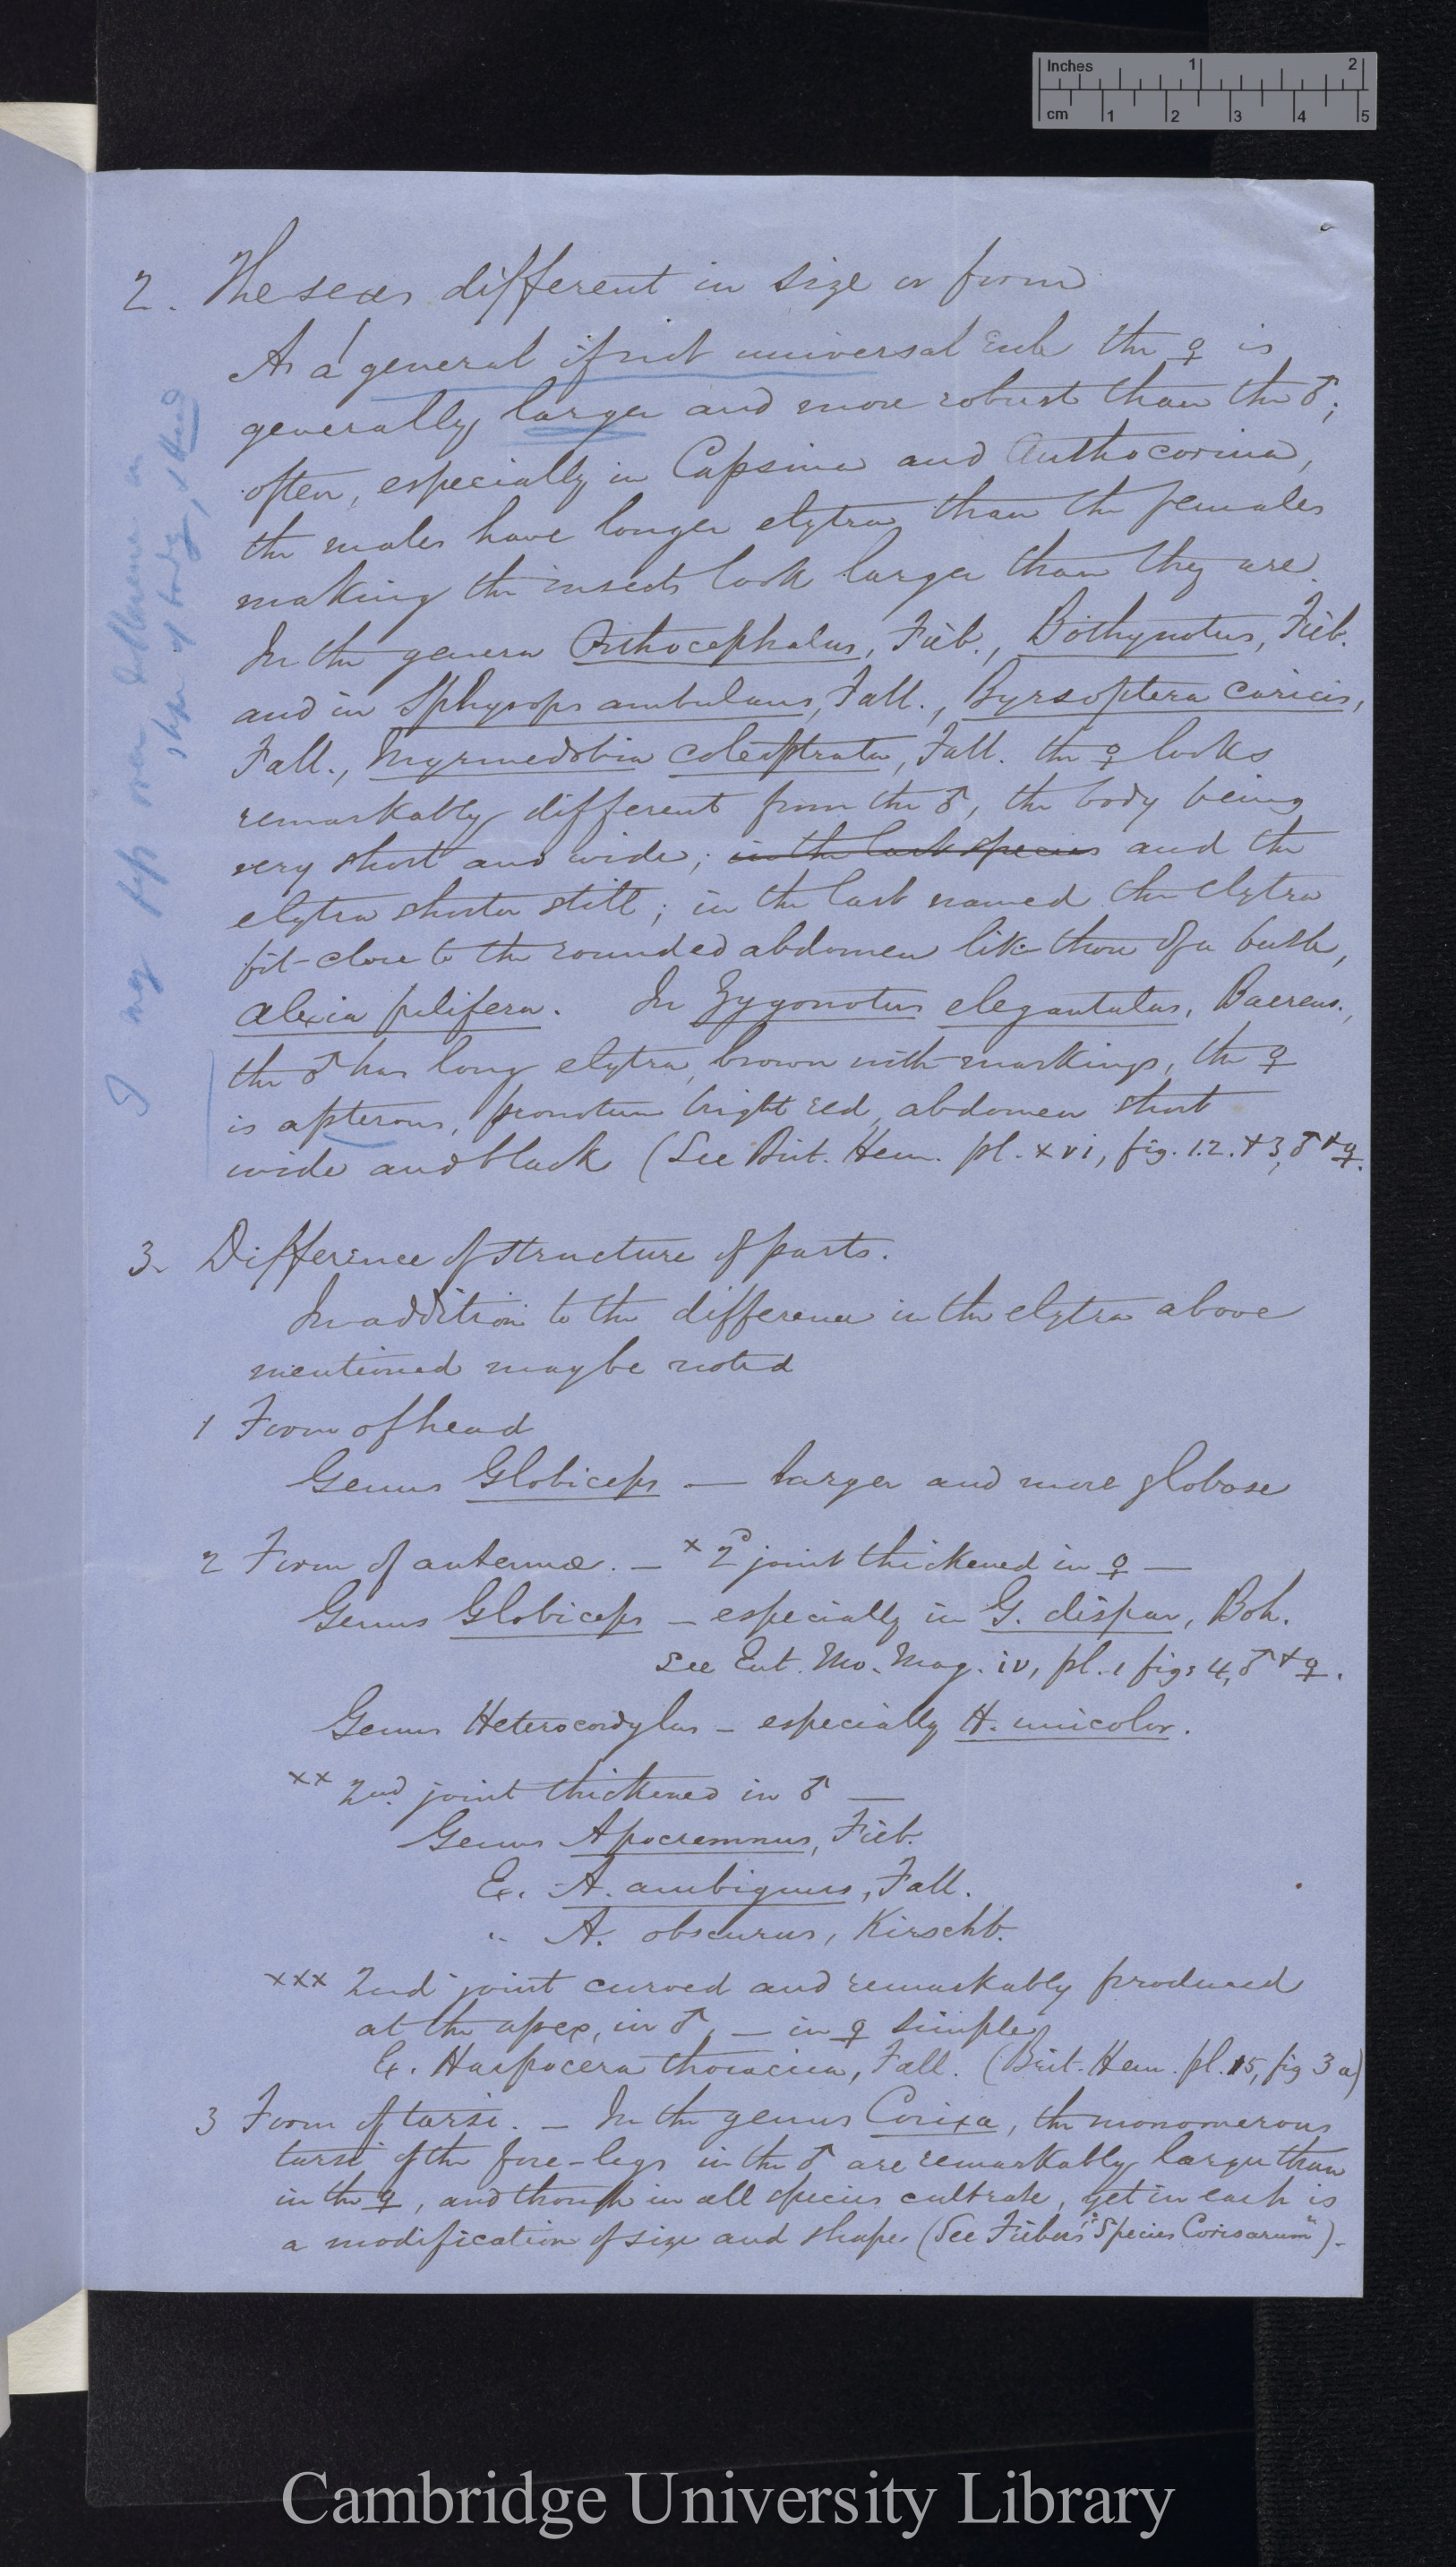 Inches 1 2
cm 1 2 3 4 5
2. The sexes different in size or form
As a general if not universal rule the ♀ is
generally larger and more robust than the ♂;
often, especially in Capsina and Anthocorina,
the males have longer elytra than the females
making the insects look larger than they are.
In the genera Orthocephalus, Fieb., Bothynotus, Fieb.
and in Sphyrops ambulans, Fall., Byrsoptera caricis,
Fall., Myrmedobia coleoptrata, Fall. the ♀ looks
remarkably different from the ♂, the body being
very short and wide; in the last species and the
elytra shorter still; in the last named the elytra
fit-close to the rounded abdomen like those of a beetle,
Alexia pilifera. In Zygonotus elegantulus, Baerens.,
the ♂ has long elytra, brown with markings, the ♀
is apterous, pronotum bright red, abdomen short
wide and black (See Brit. Hem. pl. xvi, fig. 1.2. + 3, ♂ + ♀.
I may say some difference in
shape of body, & Head
3. Difference of structure of parts.
In addition to the difference in the elytra above
mentioned may be noted
1 Form of head
Genus Globiceps — larger and more globose
2 Form of antennæ. — x 2d joint thickened in ♀ —
Genus Globiceps — especially in G. dispar, Boh.
See Ent. Mo. Mag. iv, pl. 1 figs 4, ♂ + ♀.
Genus Heterocordylus — especially H. unicolor.
xx 2nd joint thickened in ♂ —
Genus Apocremnus, Fieb.
Ex. A. ambiguus, Fall.
" A. obscurus, Kirschb.
xxx 2nd joint curved and remarkably produced
at the apex, in ♂, — in ♀ simple
Ex. Harpocera thoracica, Fall. (Brit. Hem. pl. 15, fig 3 a)
3 Form of tarsi. — In the genus Corixa, the monomerous
tarsi of the fore-legs in the ♂ are remarkably larger than
in the ♀, and though in all species cultrate, yet in each is
a modification of size and shape. (See Fieber's "Species Corisarum").
Cambridge University Library